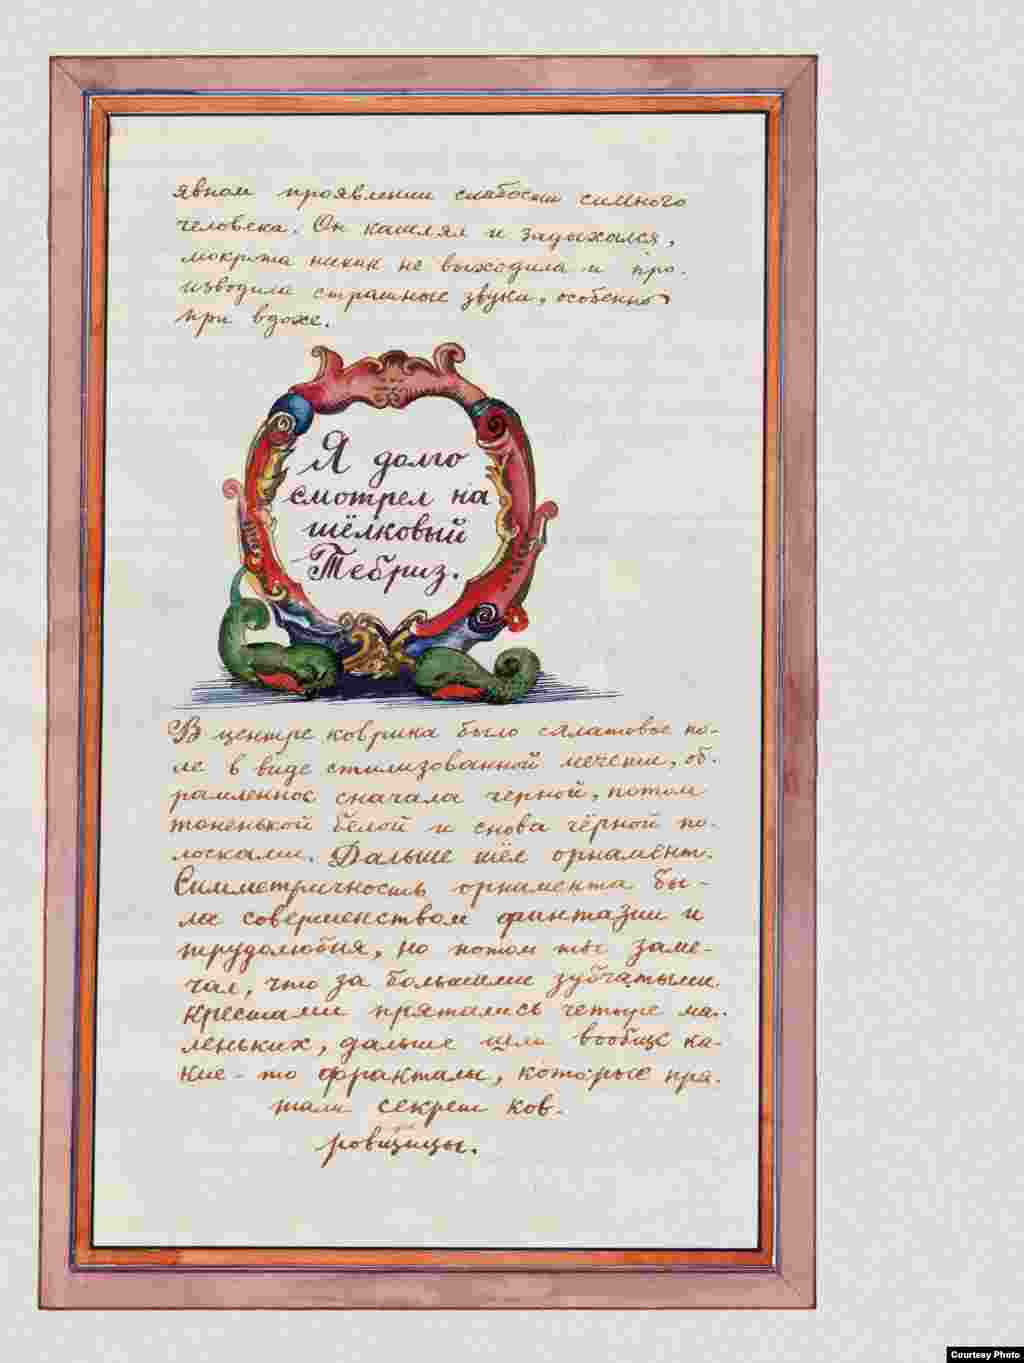 явном проявлении слабости сильного
человека. Он кашлял и задыхался,
мокрота никак не выходила и про-
изводила страшные звуки, особенно
при вдохе.
Я долго
смотрел на
шёлковый
Тебриз.
В центре коврика было салатовое по-
ле в виде стилизованной мечети, об-
рамленное сначала черной, потом
тоненькой белой и снова чёрной по-
лосками. Дальше шёл орнамент.
Симметричность орнамента бы-
ла совершенством фантазии и
трудолюбия, но потом ты заме-
чал, что за большими зубчатыми
крестами прятались четыре ма-
леньких, дальше шли вообще ка-
кие-то фракталы, которые пря-
тали секрет ков-
ровщицы.
Courtesy Photo